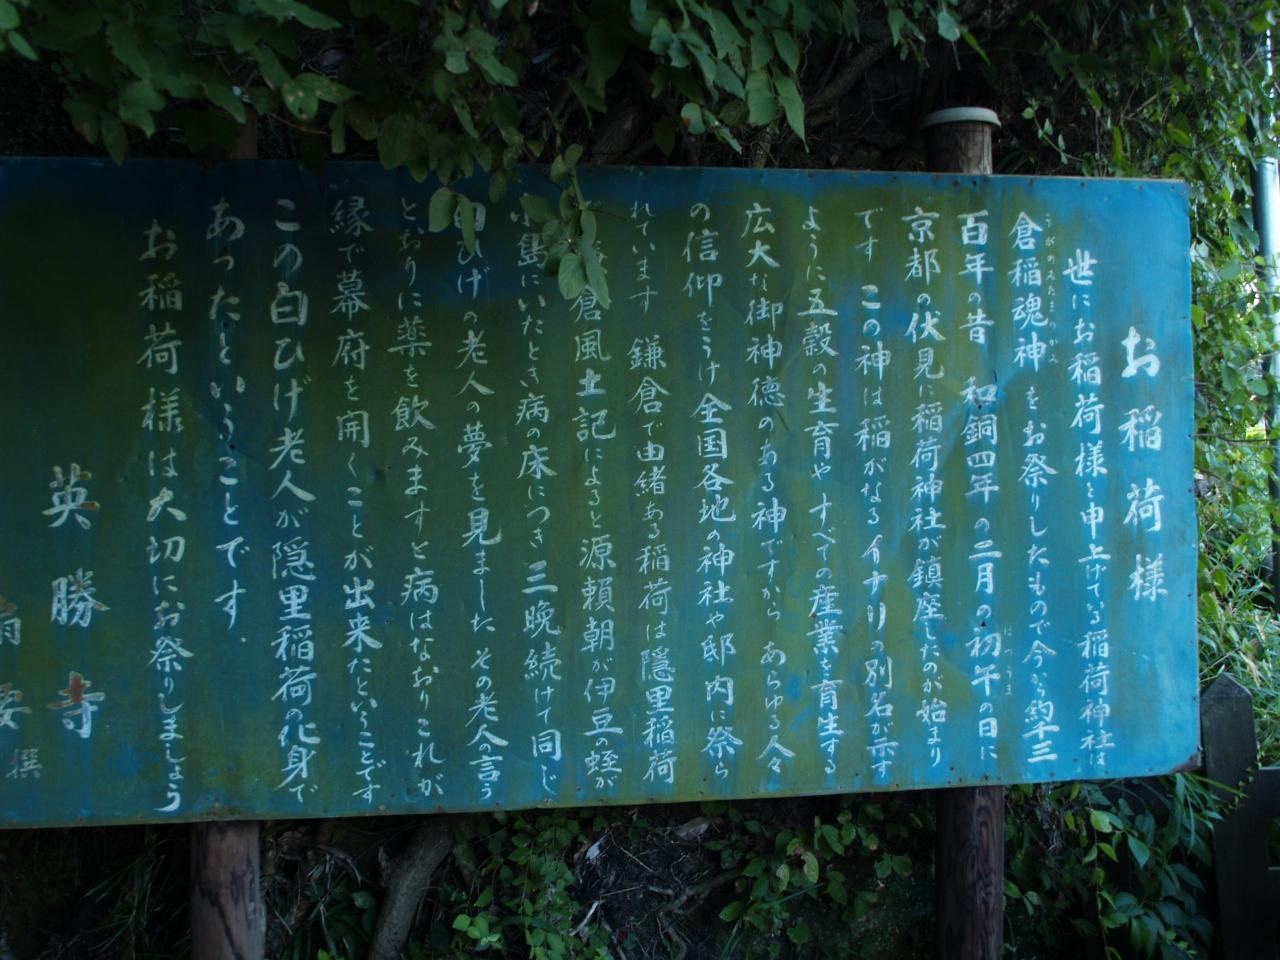 お稲荷様
世にお稲荷様と申上げている稲荷神社は
倉稲魂神をお祭りしたもので今から約千三
うがのみたまのかみ
百年の昔 和銅四年の二月の初午の日に
はつうま
京都の伏見に稲荷神社が鎮座したのが始まり
です この神は稲がなるイナリの別名が示す
ように五穀の生育やすべての産業を育生する
広大な御神徳のある神ですから あらゆる人々
の信仰をうけ全国各地の神社や邸内に祭ら
れています 鎌倉で由緒ある稲荷は隠里稲荷
倉風土記によると源頼朝が伊豆の蛭が
小島にいたとき病の床につき三晩続けて同じ
白ひげの老人の夢を見ました その老人の言う
とおりに薬を飲みますと病はなおりこれが
縁で幕府を開くことが出来たということです
この白ひげ老人が隠里稲荷の化身で
あったということです.
お稲荷様は大切にお祭りしましょう
英勝寺
撰